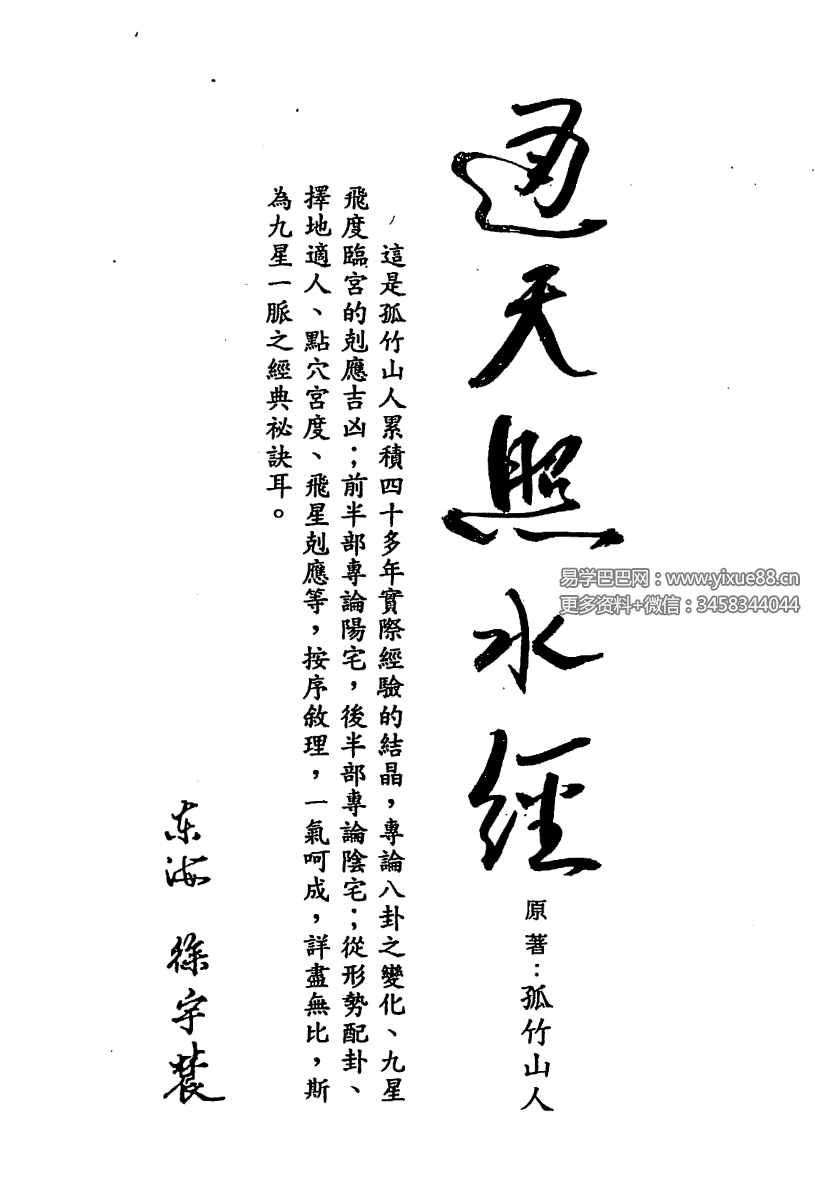 通天照水經
原著：孤竹山人
這是孤竹山人累積四十多年實際經驗的結晶，專論八卦之變化、九星
飛度臨宮的剋應吉凶；前半部專論陽宅，後半部專論陰宅；從形勢配卦、
擇地適人、點穴宮度、飛星剋應等，按序敘理，一氣呵成，詳盡無比，斯
為九星一脈之經典祕訣耳。
东海 徐宇
易学巴巴网：www.yixue88.cn
更多资料+微信：3458344044